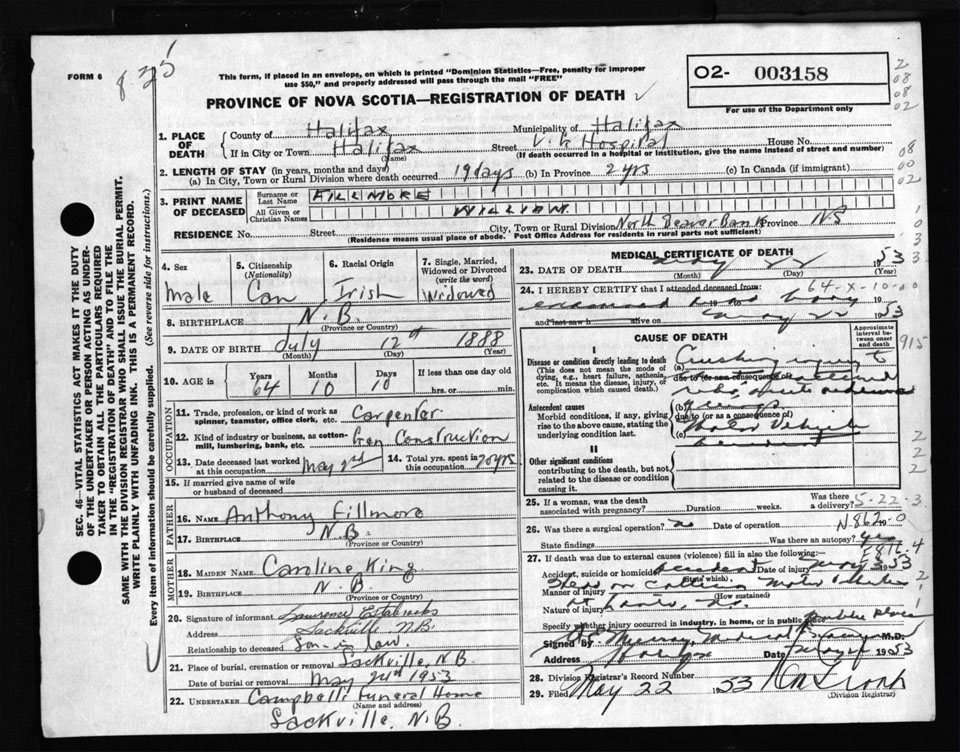 FORM 6
835
This form, if placed in an envelope, on which is printed "Dominion Statistics—Free, penalty for improper
use $50," and properly addressed will pass through the mail "FREE"
PROVINCE OF NOVA SCOTIA—REGISTRATION OF DEATH
O2- 003158
For use of the Department only
SEC. 46—VITAL STATISTICS ACT MAKES IT THE DUTY
OF THE UNDERTAKER OR PERSON ACTING AS UNDER-
TAKER TO OBTAIN ALL THE PARTICULARS REQUIRED
IN THE "REGISTRATION OF DEATH" AND TO FILE THE
SAME WITH THE DIVISION REGISTRAR WHO SHALL ISSUE THE BURIAL PERMIT.
WRITE PLAINLY WITH UNFADING INK. THIS IS A PERMANENT RECORD.
Every item of information should be carefully supplied. (See reverse side for instructions.)
1. PLACE OF DEATH
County of Halifax Municipality of Halifax
If in City or Town Halifax Street V. G Hospital House No.
(Name) (If death occurred in a hospital or institution, give the name instead of street and number)
2. LENGTH OF STAY (in years, months and days)
(a) In City, Town or Rural Division where death occurred 19 days (b) In Province 2 yrs (c) In Canada (if immigrant)
3. PRINT NAME OF DECEASED
Surname or Last Name FILLMORE
All Given or Christian Names WILLIAM
RESIDENCE No. Street City, Town or Rural Division North Beaver Bank Province N.S
(Residence means usual place of abode. Post Office Address for residents in rural parts not sufficient)
4. Sex Male
5. Citizenship (Nationality) Can
6. Racial Origin Irish
7. Single, Married, Widowed or Divorced (write the word) Widowed
8. BIRTHPLACE N.B.
(Province or Country)
9. DATE OF BIRTH July 12th 1888
(Month) (Day) (Year)
10. AGE in Years 64 Months 10 Days 10 If less than one day old
hrs. or min.
OCCUPATION
11. Trade, profession, or kind of work as spinner, teamster, office clerk, etc. Carpenter
12. Kind of industry or business, as cotton-mill, lumbering, bank, etc. Gen Construction
13. Date deceased last worked at this occupation May 2nd
14. Total yrs. spent in this occupation 20 yrs
15. If married give name of wife or husband of deceased
FATHER
16. NAME Anthony Fillmore
17. BIRTHPLACE N.B.
(Province or Country)
MOTHER
18. MAIDEN NAME Caroline King
19. BIRTHPLACE N.B.
(Province or Country)
20. Signature of informant Laurence Estabrooks
Address Sackville N.B.
Relationship to deceased Son-in Law
21. Place of burial, cremation or removal Sackville, N.B.
Date of burial or removal May 24th 1953
22. UNDERTAKER Campbell's Funeral Home
(Name and address)
Sackville, N.B.
MEDICAL CERTIFICATE OF DEATH
23. DATE OF DEATH May 22 1953
(Month) (Day) (Year)
24. I HEREBY CERTIFY that I attended deceased from 64-X-10-00
examined dead body 19
and last saw h alive on May 22 1953
CAUSE OF DEATH
Approximate interval between onset and death
I
Disease or condition directly leading to death
(This does not mean the mode of dying, e.g., heart failure, asthenia, etc. It means the disease, injury, or complication which caused death.)
(a) Crushing injury to
due to (or as a consequence of)
Antecedent causes
Morbid conditions, if any, giving rise to the above cause, stating the underlying condition last.
(b)
due to (or as a consequence of)
(c) Motor Vehicle
II
Other significant conditions
contributing to the death, but not related to the disease or condition causing it.
25. If a woman, was the death associated with pregnancy? Duration weeks. Was there a delivery? 5-22-3
26. Was there a surgical operation? no Date of operation N-862-0
State findings Was there an autopsy? yes
E816.4
27. If death was due to external causes (violence) fill in also the following:—
Accident, suicide or homicide accident Date of injury May 3 1953
(State which)
Manner of injury Head on Collision Motor Vehicles
(How sustained)
Nature of injury
Specify whether injury occurred in industry, in home, or in public place public place
Signed by Murray, Medical Examiner M.D.
Address Halifax Date May 1953
28. Division Registrar's Record Number
29. Filed May 22 1953
(Division Registrar)